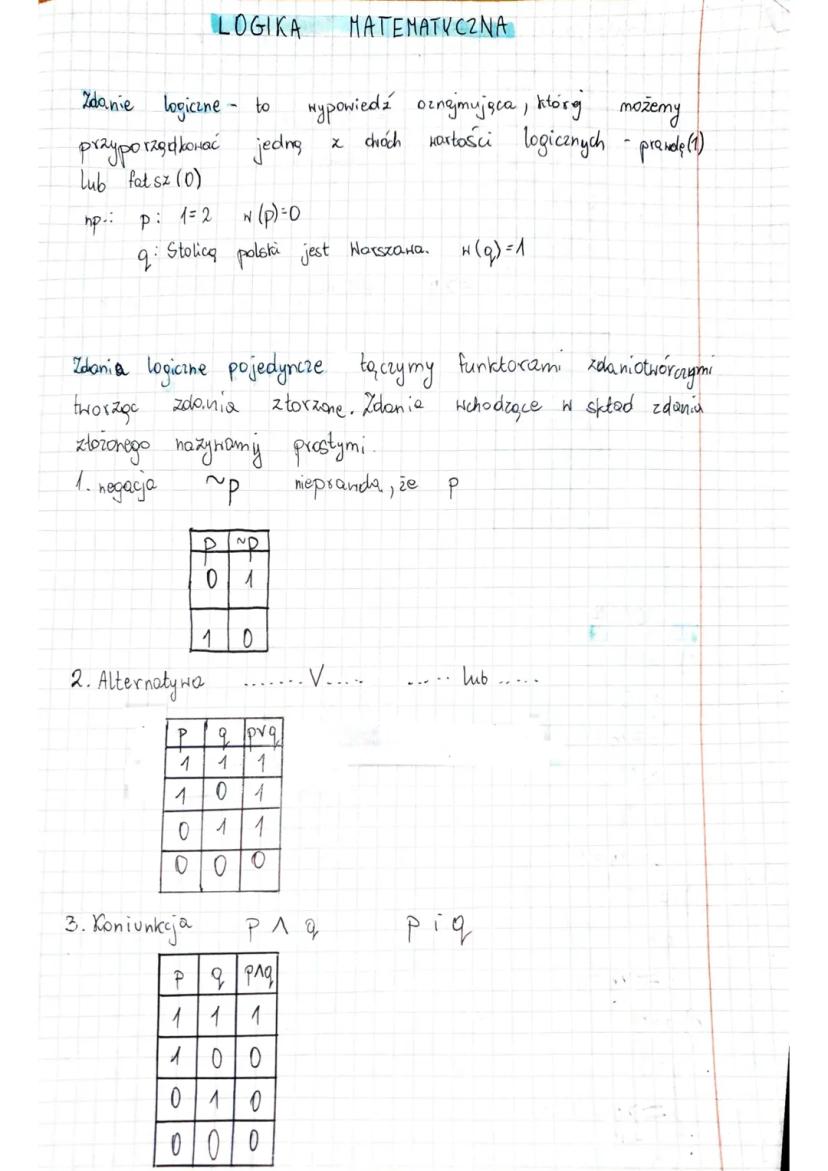 LOGIKA MATEMATYCZNA
Zdanie logiczne - to wypowiedź oznajmująca, którą możemy
przyporządkować jedną z dwóch wartości logicznych - prawdę (1)
lub fałsz (0)
np.: p: 1=2 w(p)=0
q: Stolicą polski jest Warszawa. w(q)=1
Zdania logiczne pojedyncze łączymy funktorami zdaniotwórczymi
tworząc zdania złożone. Zdania wchodzące w skład zdania
złożonego nazywamy prostymi.
1. negacja ~p nieprawda, że p
p ~p
0 1
1 0
2. Alternatywa ....... V..... ..... lub .....
p q p∨q
1 1 1
1 0 1
0 1 1
0 0 0
3. Koniunkcja p ∧ q p i q
p q p∧q
1 1 1
1 0 0
0 1 0
0 0 0